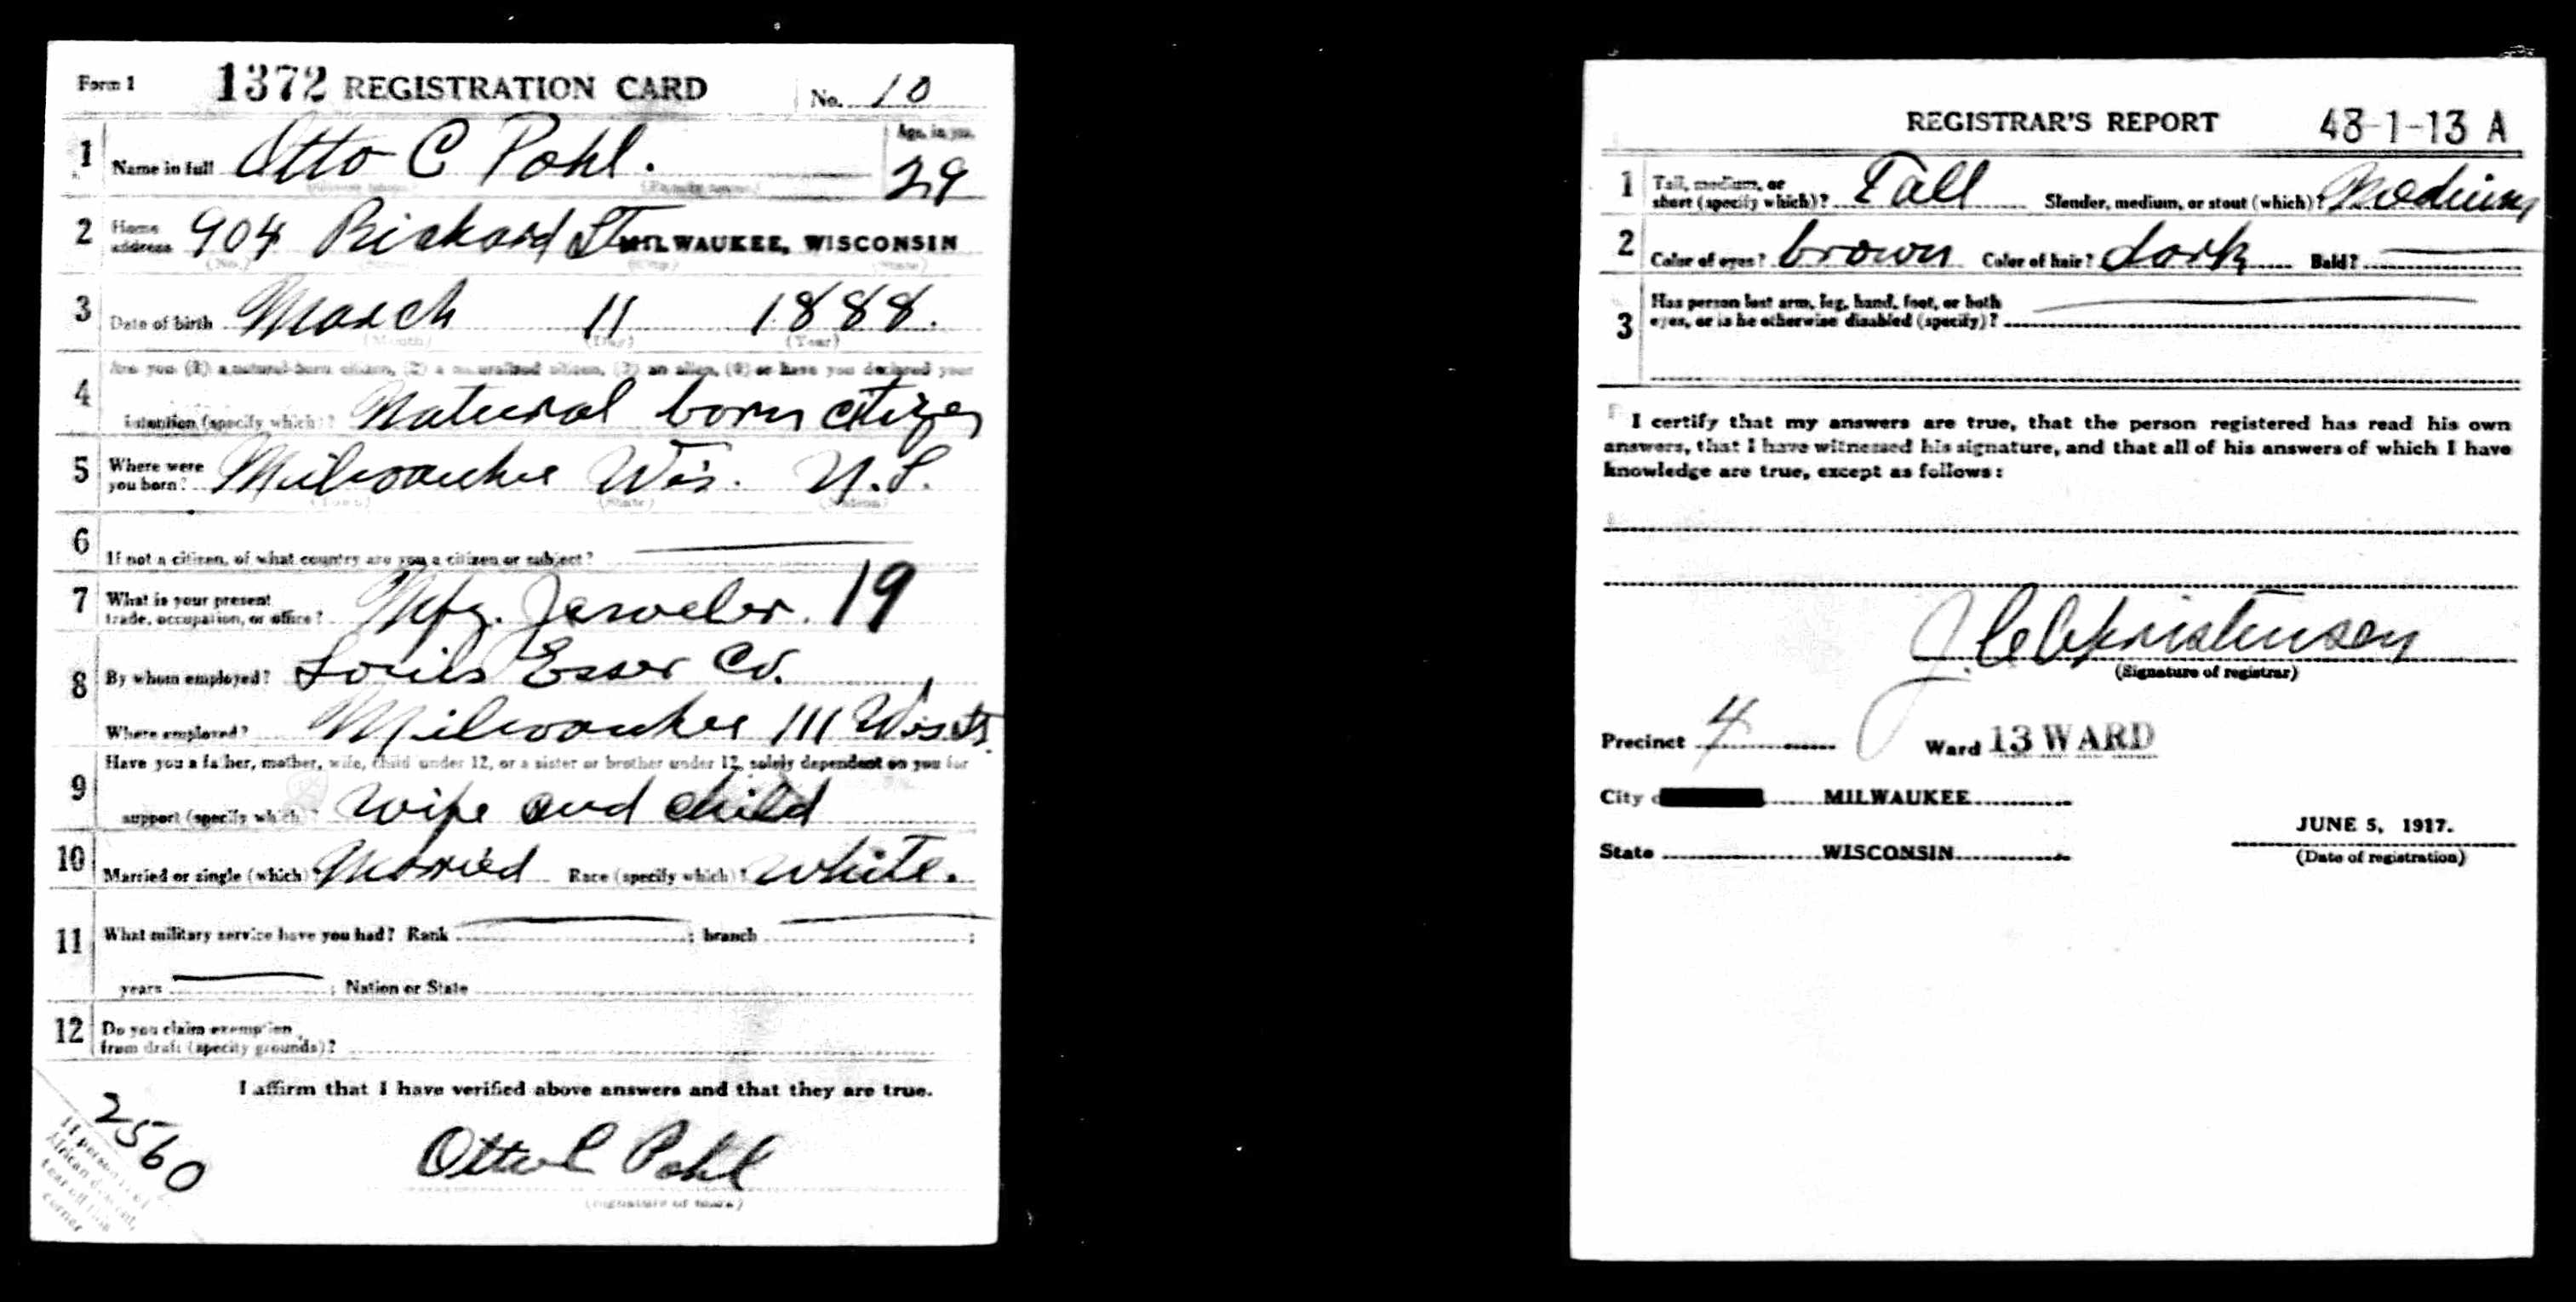 Form 1 1372 REGISTRATION CARD No. 10
1 Name in full Otto C Pohl. Age, in yrs. 29
(Given name) (Family name)
2 Home address 904 Richard St MILWAUKEE, WISCONSIN
(No.) (Street) (City) (State)
3 Date of birth March 11 1888.
(Month) (Day) (Year)
4 Are you (1) a natural-born citizen, (2) a naturalized citizen, (3) an alien, (4) or have you declared your
intention (specify which)? Natural born citizen
5 Where were you born? Milwaukee Wis. U.S.
(Town) (State) (Nation)
6 If not a citizen, of what country are you a citizen or subject?
7 What is your present trade, occupation, or office? Mfg. Jeweler. 19
8 By whom employed? Louis Esser Co.
Where employed? Milwaukee 111 Wis St.
9 Have you a father, mother, wife, child under 12, or a sister or brother under 12, solely dependent on you for
support (specify which)? Wife and child
10 Married or single (which)? Married Race (specify which)? White.
11 What military service have you had? Rank ; branch ;
years ; Nation or State
12 Do you claim exemption
from draft (specify grounds)?
I affirm that I have verified above answers and that they are true.
2560
If person is of
African descent,
tear off this
corner
Otto C Pohl
(Signature of mark)
REGISTRAR'S REPORT 48-1-13 A
1 Tall, medium, or
short (specify which)? Tall Slender, medium, or stout (which)? Medium
2 Color of eyes? brown Color of hair? dark Bald?
3 Has person lost arm, leg, hand, foot, or both
eyes, or is he otherwise disabled (specify)?
I certify that my answers are true, that the person registered has read his own
answers, that I have witnessed his signature, and that all of his answers of which I have
knowledge are true, except as follows:
J C Christensen
(Signature of registrar)
Precinct 4 Ward 13 WARD
City MILWAUKEE
State WISCONSIN
JUNE 5, 1917.
(Date of registration)